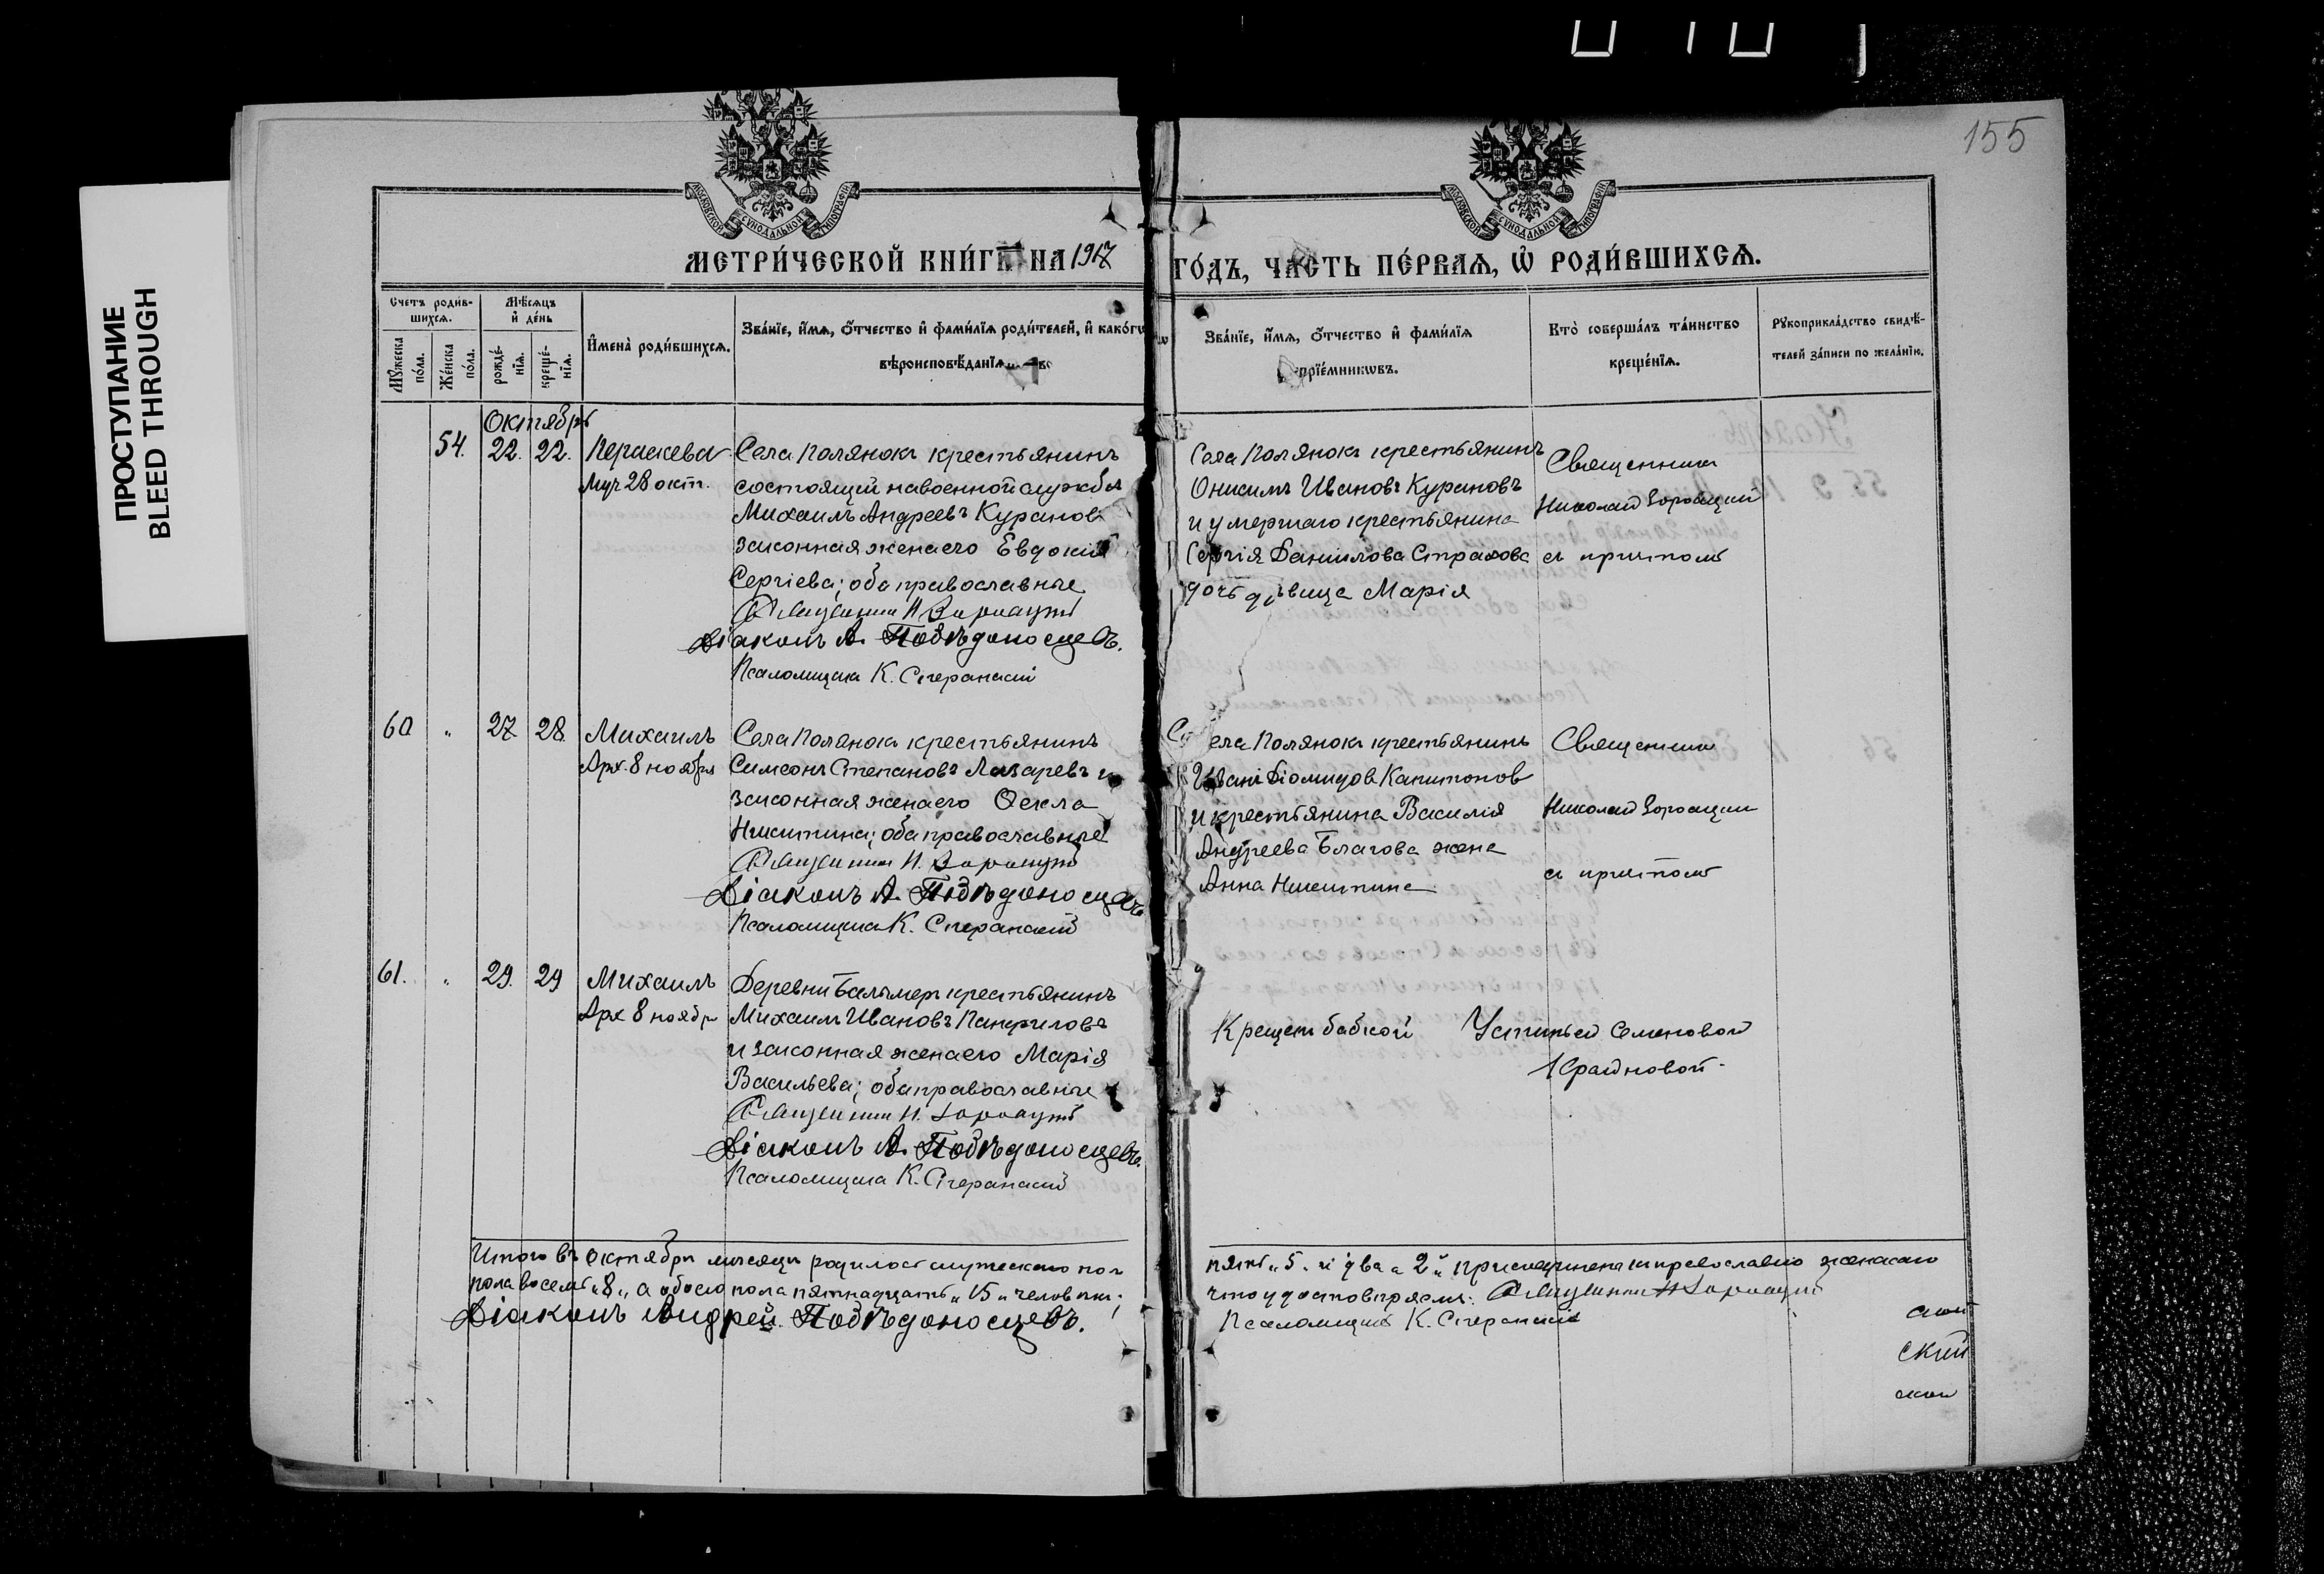 155
ПРОСТУПАНИЕ
BLEED THROUGH
МОСКОВСКОЙ СѴНОДАЛЬНОЙ ТИПОГРАФІИ
МОСКОВСКОЙ СѴНОДАЛЬНОЙ ТИПОГРАФІИ
МЕТРИ́ЧЕСКОЙ КНИ́ГИ НА 1917
ГО́ДЪ, ЧАСТЬ ПЕ́РВАЯ, Ѡ РОДИ́ВШИХСЯ.
Счетъ роди́в-
шихся.
Мѣ́сяцъ
и де́нь
Му́жеска
по́ла.
Же́нска
по́ла.
рожде́-
нїя.
креще́-
нїя.
Имена̀ роди́вшихся.
Зва́нїе, и́мя, ѻ́тчество и фами́лїя роди́телей, и како́гѡ
вѣроисповѣ́данїя
Зва́нїе, и́мя, ѻ́тчество и фами́лїя
прїе́мникѡвъ.
Кто̀ соверша́лъ та́инство
креще́нїя.
Рукоприкла́дство свидѣ́-
телей за́писи по жела́нїю.
Октябрь
54. 22. 22. Параскева
Муч 28 окт.
Села Полянокъ крестьянинъ
состоящій на военной службѣ
Михаилъ Андреевъ Курановъ
законная жена его Евдокія
Сергіева; оба православные
Священникъ Н.
Діаконъ А. Побѣдоносцевъ.
Псаломщикъ К. Сперанскій
Села Полянокъ крестьянинъ
Онисимъ Ивановъ Курановъ
и умершаго крестьянина
Сергія Данилова Страхова
дочь дѣвица Марія
Священникъ
Николай
съ причтомъ
60 " 27 28 Михаилъ
Арх. 8 ноября
Села Полянокъ крестьянинъ
Симеонъ Степановъ Лазаревъ и
законная жена его Ѳекла
Никитина; оба православные
Священникъ Н.
Діаконъ А. Побѣдоносцевъ
Псаломщикъ К. Сперанскій
Села Полянокъ крестьянинъ
Иванъ Діомидовъ Капитонов
и крестьянина Василія
Андреева Благова жена
Анна Никитина
Священникъ
Николай
съ причтомъ
61. " 29. 29 Михаилъ
Арх 8 ноябр
Деревни Балымеръ крестьянинъ
Михаилъ Ивановъ Панфиловъ
и законная жена его Марія
Васильева; оба православные
Священникъ Н.
Діаконъ А. Побѣдоносцевъ.
Псаломщикъ К. Сперанскій
Крещенъ бабкой Устиньей Семеновой
Итого въ октябрѣ мѣсяцѣ родилось мужескаго пол
пола восемь "8" а обоего пола пятнадцать "15" человѣкъ;
Діаконъ Андрей Побѣдоносцевъ.
пять "5" и два "2" присоединена къ православію женскаго
что удостовѣряемъ: Священникъ Н
Псаломщикъ К. Сперанскій
ской
ский
ской